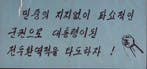 민중의 지지없이 파쇼적인
군권으로 대통령이된
전두환역적을 타도하자!